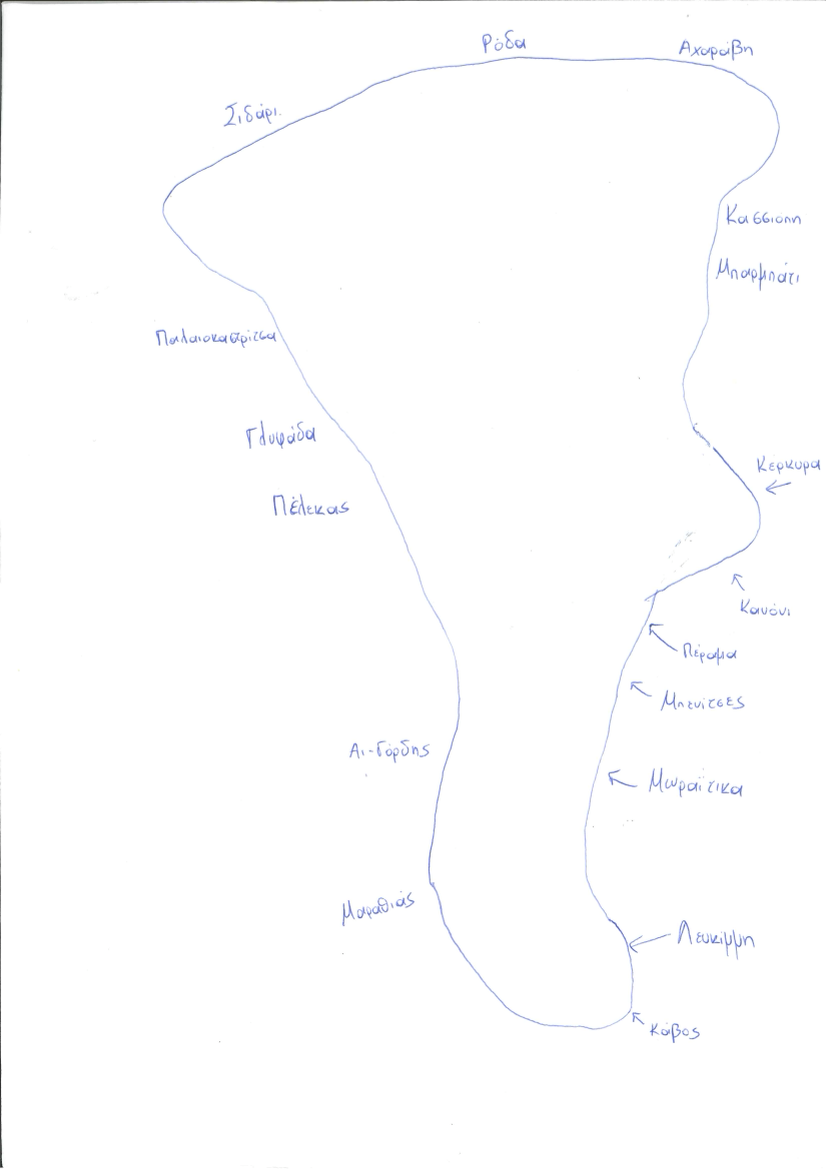 Ρόδα
Αχαράβη
Σιδάρι.
Κασσιοπη
Μπαρμπάτι
Παλαιοκαστρίτσα
Γλυφάδα
Κέρκυρα
Πέλεκας
Κανόνι
Πέραμα
Μπενίτσες
Αι-Γόρδης
Μωραΐτικα
Μαραθιάς
Λευκίμμη
Κάβος